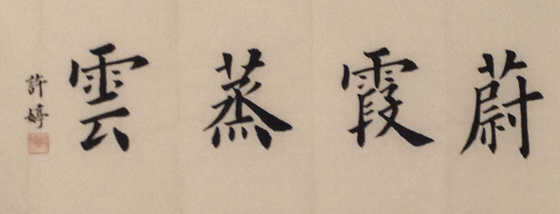 蔚霞蒸雲
許